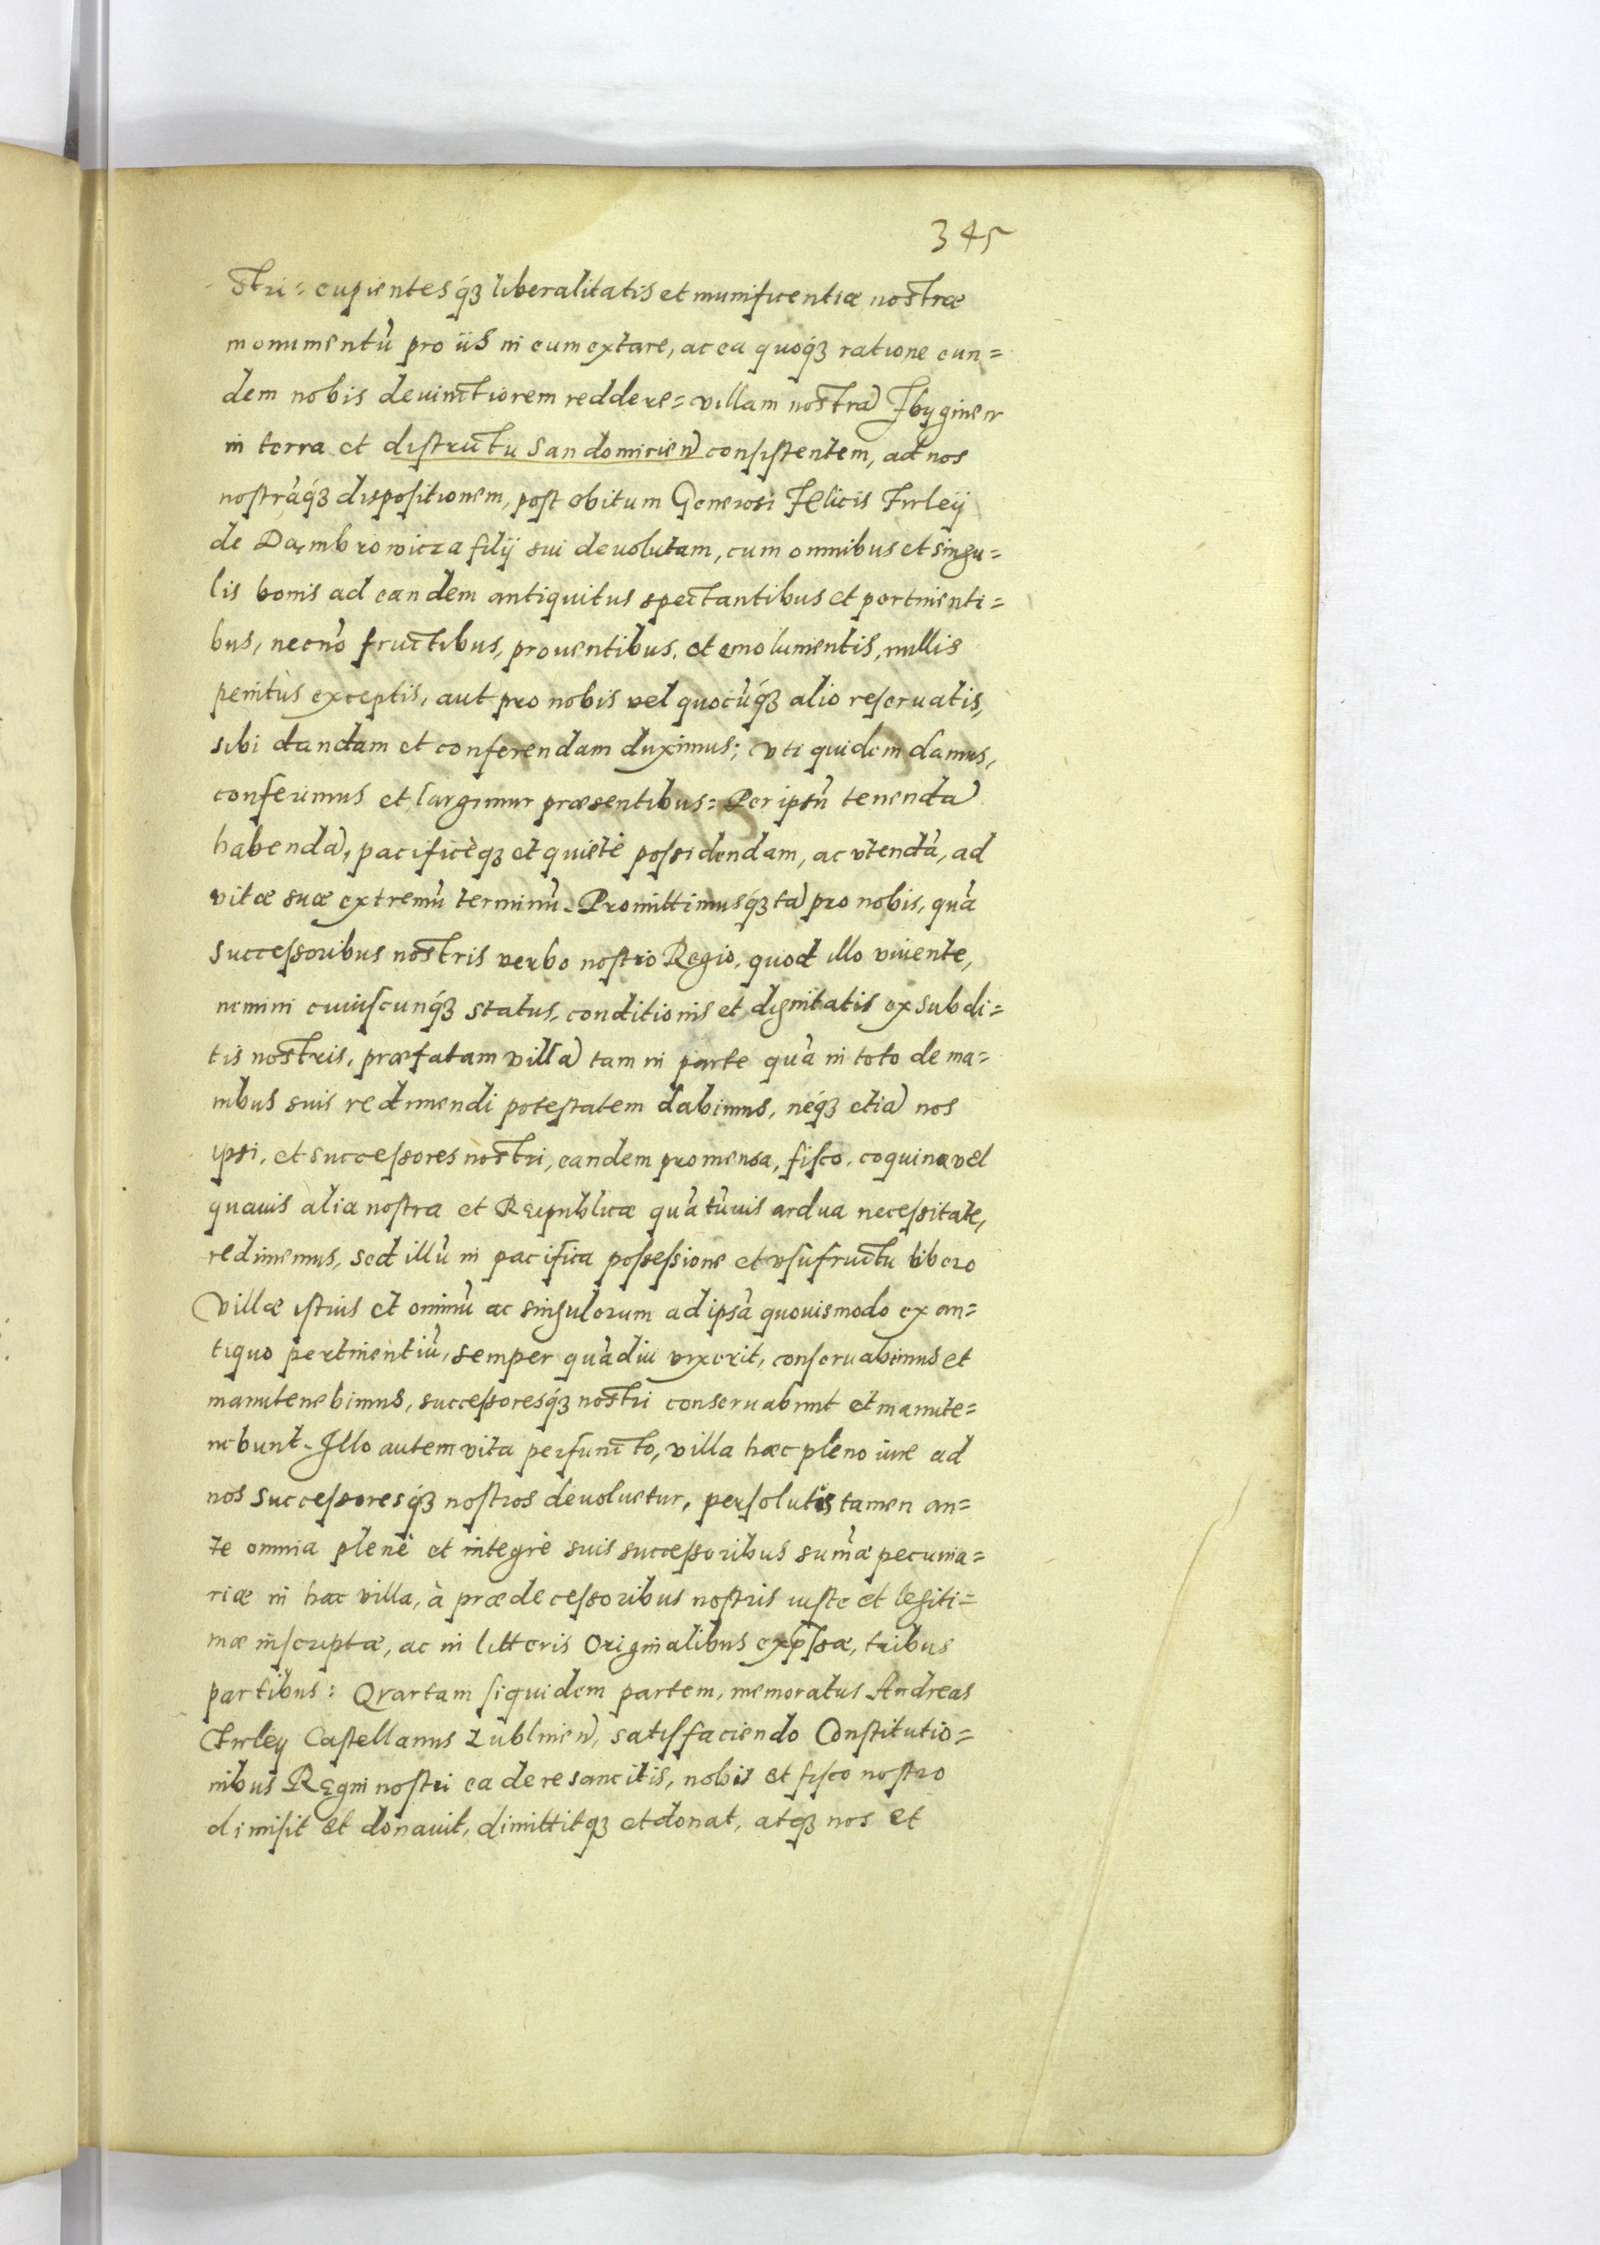 345
stri: cupientesq́ꝫ liberalitatis et munificentiæ nostræ
monumentũ pro iis in eum extare, ac ea quoq́ꝫ ratione eun=
dem nobis deuinctiorem reddere: villam nostrã
in terra et districtu Sandomirieñ consistentem, ad nos
nostrãq́ꝫ dispositionem, post obitum Generosi Felicis Firleÿ
de Dąmbrowicza filÿ sui deuolutam, cum omnibus et singu=
lis bonis ad eandem antiquitus spectantibus et pertinenti=
bus, necnõ fructibus, prouentibus, et emolumentis, nullis
penitùs exceptis, aut pro nobis vel quocũq́ꝫ alio reseruatis,
sibi dandam et conferendam duximus; vti quidem damus,
conferimus et largimur præsentibus: Per ipsũ tenendã
habendã, pacificèqꝫ et quietè possidendam, ac vtendã, ad
vitæ suæ extremũ terminũ. Promittimusq́ꝫ tã pro nobis, quã
successoribus nostris verbo nostro Regio, quod illo viuente,
nemini cuiuscunq́ꝫ status, conditionis et dignitatis ex subdi=
tis nostris, præfatam villã tam in parte quã in toto de ma=
nibus suis redimendi potestatem dabimus, neq́ꝫ etiã nos
ipsi, et successores nostri, eandem pro mensa, fisco, coquina vel
quauis alia nostra et Reipublicæ quãtũuis ardua necessitate,
redimemus, sed illũ in pacifica possessione et vsufructu libero
Villæ istius et omniũ ac singulorum ad ipsã quouismodo ex an=
tiquo pertinentiũ, semper quãdiu vixerit, conseruabimus et
manutenebimus, successoresq́ꝫ nostri conseruabunt et manute=
nebunt. Illo autem vita perfuncto, villa hæc pleno iure ad
nos successoresq́ꝫ nostros deuoluetur, persolutis tamen an=
te omnia plenè et integrè suis successoribus sum̃æ pecunia=
riæ in hac villa, à prædecessoribus nostris iuste et legiti=
mæ inscriptæ, ac in litteris Originalibus exp̃ssæ, tribus
partibus: Quartam siquidem partem, memoratus Andreas
Firleÿ Castellanus Lublineñ, satisfaciendo Constitutio=
nibus Regni nostri ea de re sancitis, nobis et fisco nostro
dimisit et donauit, dimittitqꝫ et donat, atqꝫ nos et